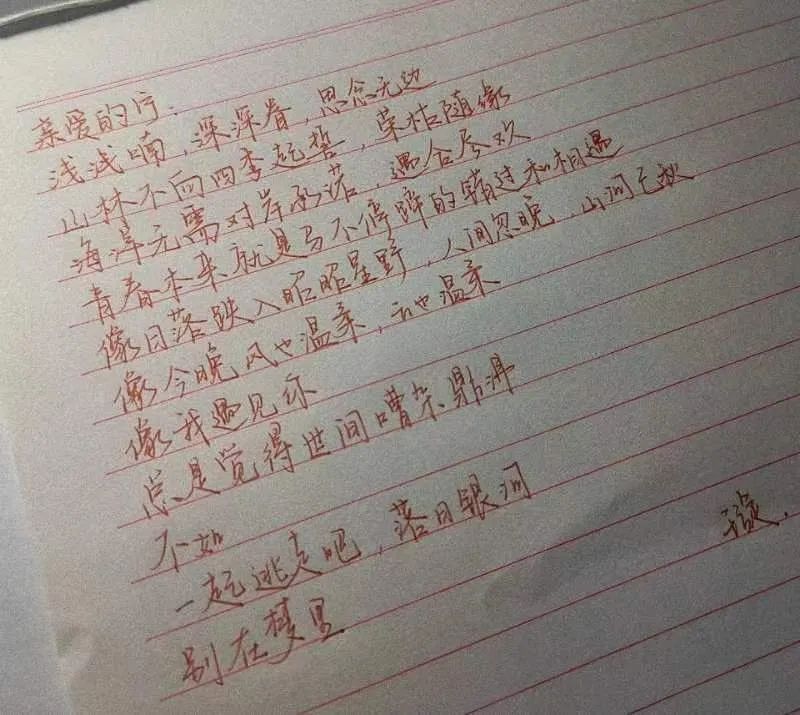 亲爱的片：
浅浅喃，深深眷，思念无边
山林不向四季起誓，荣枯随缘
海洋无需对岸承诺，遇合尽欢
青春本来就是马不停蹄的错过和相遇
像日落跌入昭昭星野，人间忽晚，山河已秋
像今晚风也温柔，云也温柔
像我遇见你
总是觉得世间嘈杂鼎沸
不如
一起逃走吧，落日银河
别在梦里